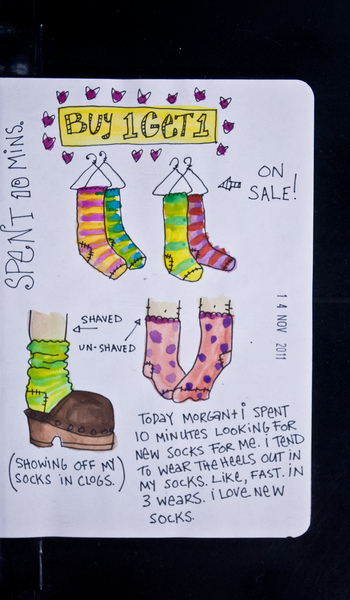 BUY 1 GET 1
SPENT 10 MINS.
ON
SALE!
SHAVED
UN-SHAVED
14 NOV 2011
(SHOWING OFF MY
SOCKS IN CLOGS.)
TODAY MORGAN + i SPENT
10 MINUTES LOOKING FOR
NEW SOCKS FOR ME. i TEND
TO WEAR THE HEELS OUT IN
MY SOCKS. LIKE, FAST. iN
3 WEARS. i LOVE NEW
SOCKS.